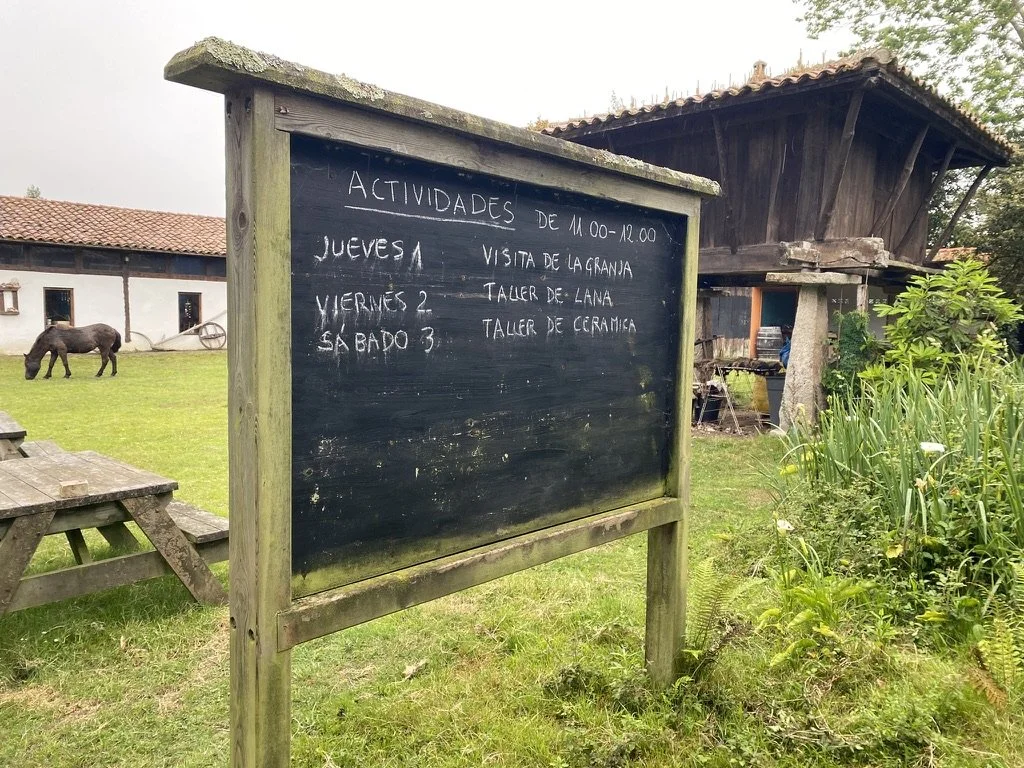 ACTIVIDADES DE 11 00-12.00
JUEVES 1 VISITA DE LA GRANJA
VIERNES 2 TALLER DE LANA
SÁBADO 3 TALLER DE CERAMICA